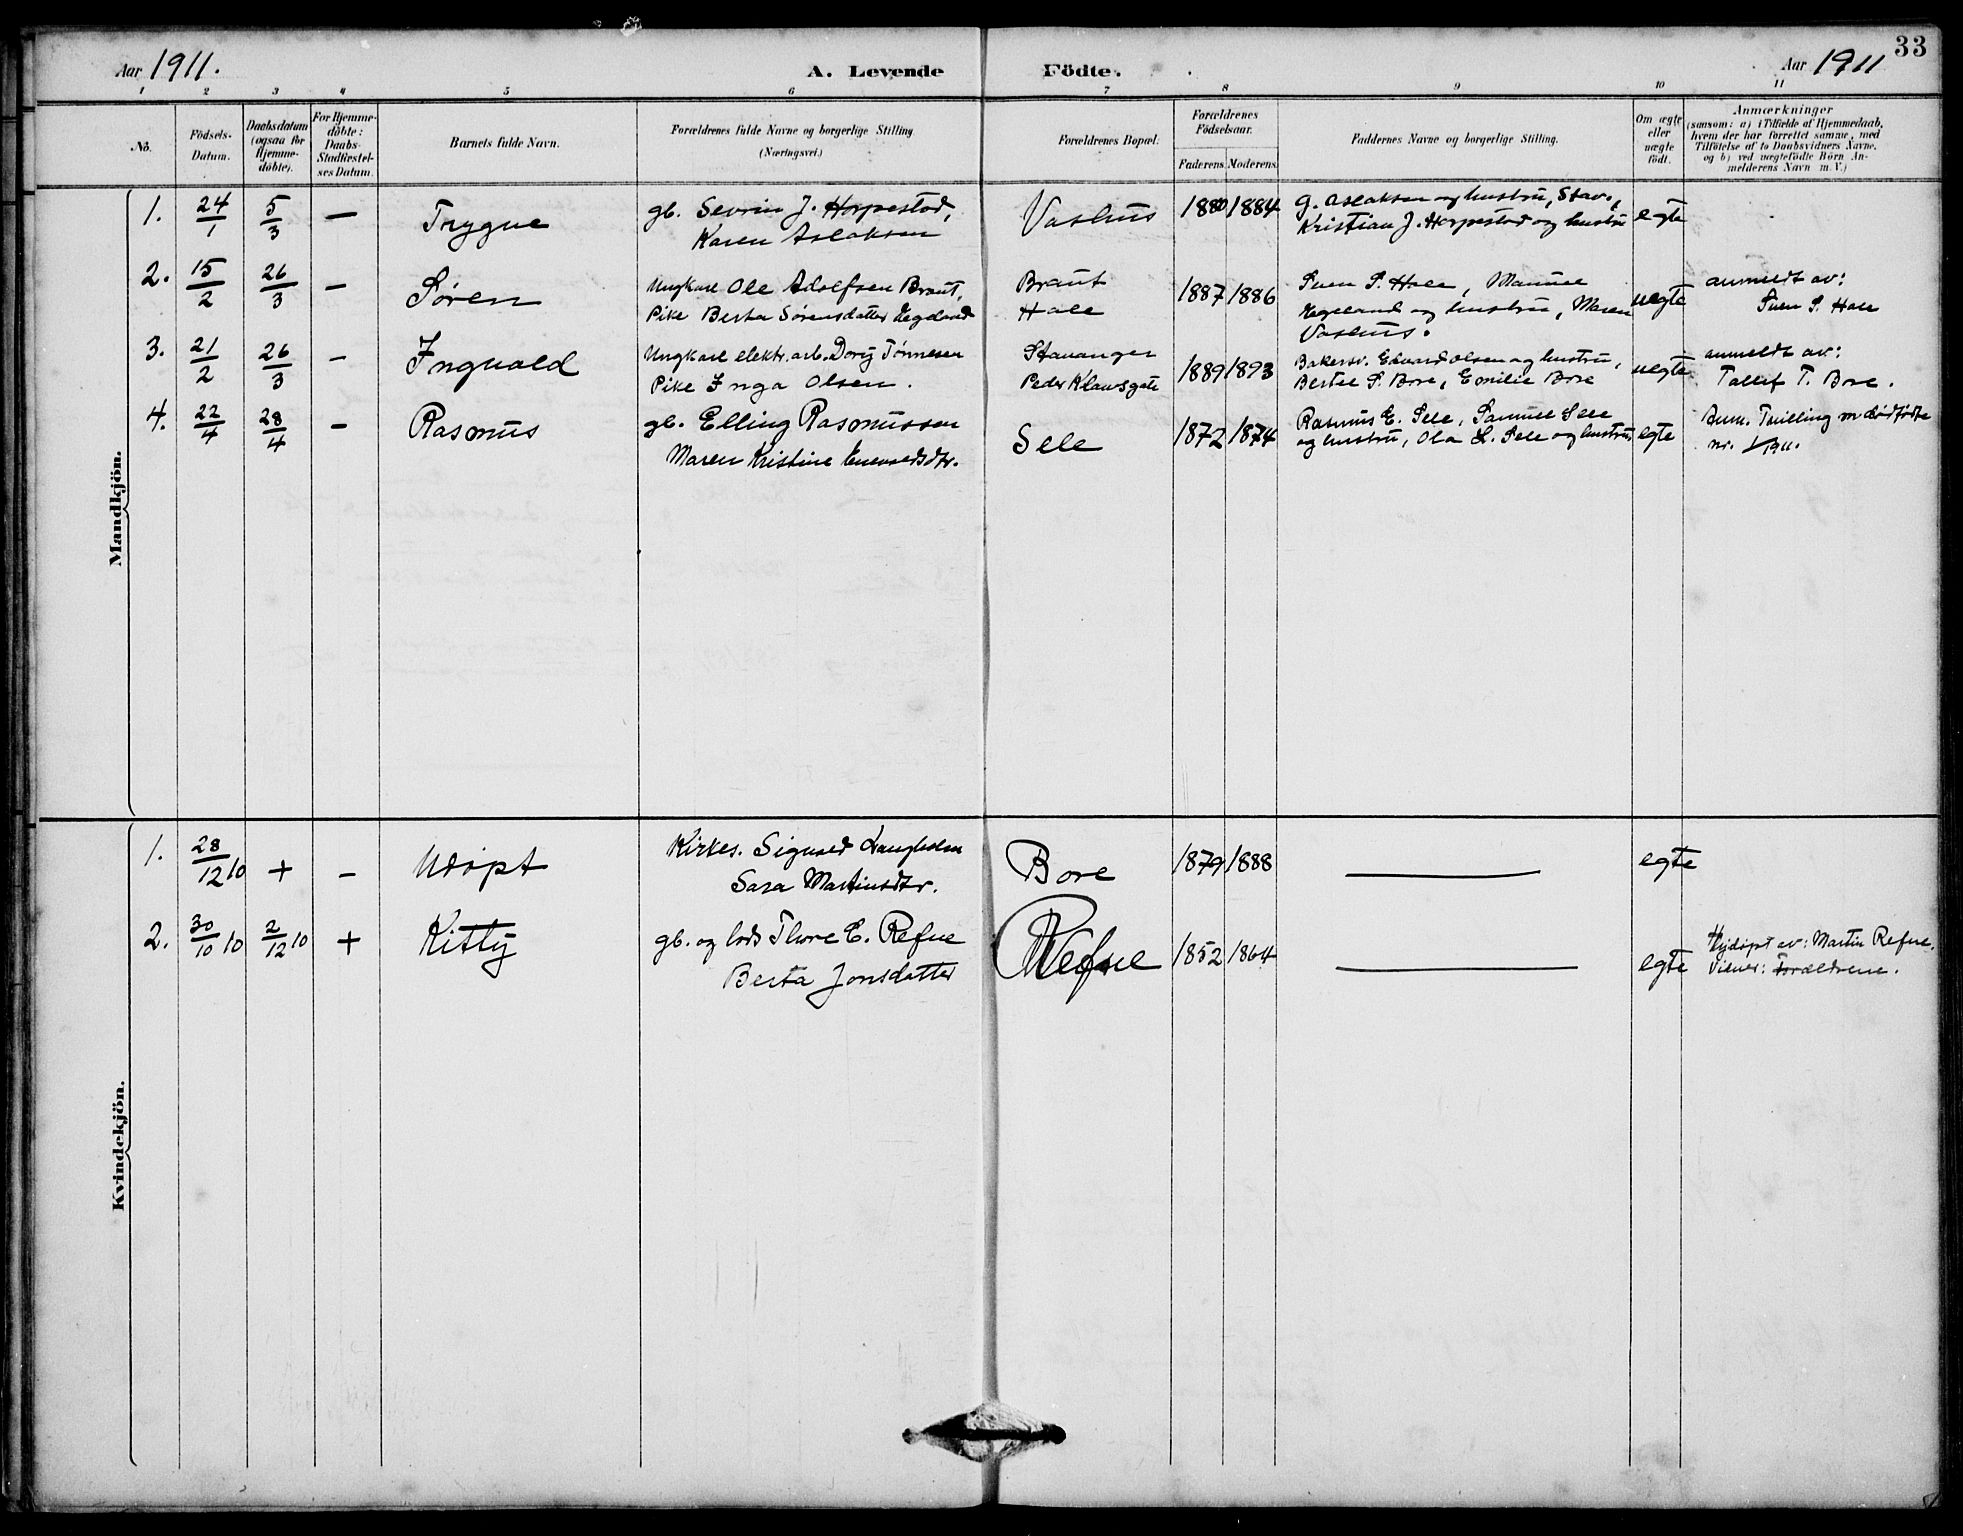 33
Aar 1911.
A. Levende Födte.
Aar 1911
1 2 3 4 5 6 7 8 9 10 11
No.
Födsels-
Datum.
Daabsdatum
(ogsaa for
Hjemme-
döbte).
For Hjemme-
döbte:
Daabs-
Stadfæstel-
ses Datum.
Barnets fulde Navn.
Forældrenes fulde Navne og borgerlige Stilling
(Næringsvei.)
Forældrenes Bopæl.
Forældrenes
Födselsaar.
Faderens. Moderens.
Faddernes Navne og borgerlige Stilling.
Om ægte
eller
uægte
födt.
Anmærkninger
(saasom: a) i Tilfælde af Hjemmedaab,
hvem der har forrettet samme, med
Tilföielse af to Daabsvidners Navne.
og b) ved uægtefödte Börn An-
melderens Navn m. V.)
Mandkjön.
1. 24/1 5/3 — Trygve
gb. Sevrin J. Horpestad,
Karen Aslaksen
Vashus 1880 1884
G. Aslaksen og hustru, Stav.,
Kristian J. Horpestad og hustru
egte
2. 15/2 26/3 — Søren
Ungkarl Ole Adolfsen Braut,
Pike Berta Sørensdatter Hegeland
Braut
Hale
1887 1886
Sven S. Hale, Manuel
Hegeland og hustru, Maren
Vashus.
uegte
anmeldt av:
Sven S. Hale
3. 21/2 26/3 — Ingvald
Ungkarl elektr. arb. Dorij Tønnesen
Pike Inga Olsen.
Stavanger
Peder Klawsgate
1889 1893
Bakersv. Edvard Olsen og hustru,
Bertel S. Bore, Emilie Bore
uegte
anmeldt av:
Tallef T. Bore.
4. 22/4 28/4 — Rasmus
gb. Elling Rasmussen
Maren Kristine Enevaldsdtr.
Sele 1872 1874
Rasmus E. Sele, Samuel Sele
og hustru, Ola L. Sele og hustru
egte
Anm. Tvilling m dødfødte
nr. 1/1911.
Kvindekjön.
1. 28/12 10 + — Udøpt
Kirkes. Sigvald Langholm
Sara Martinsdtr.
Bore 1879 1888 —
egte
2. 30/10 10 2/12 10 + Kitty
gb. og lods Thore E. Refne
Berta Jonsdatter
Refsne 1852 1864 —
egte
Hjdøpt av: Martin Refne.
Vidner: Forældrene.